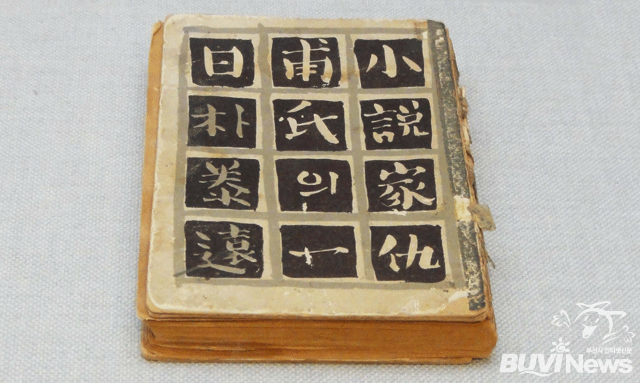 小說家仇
甫氏의一
日朴泰遠
BUVINews